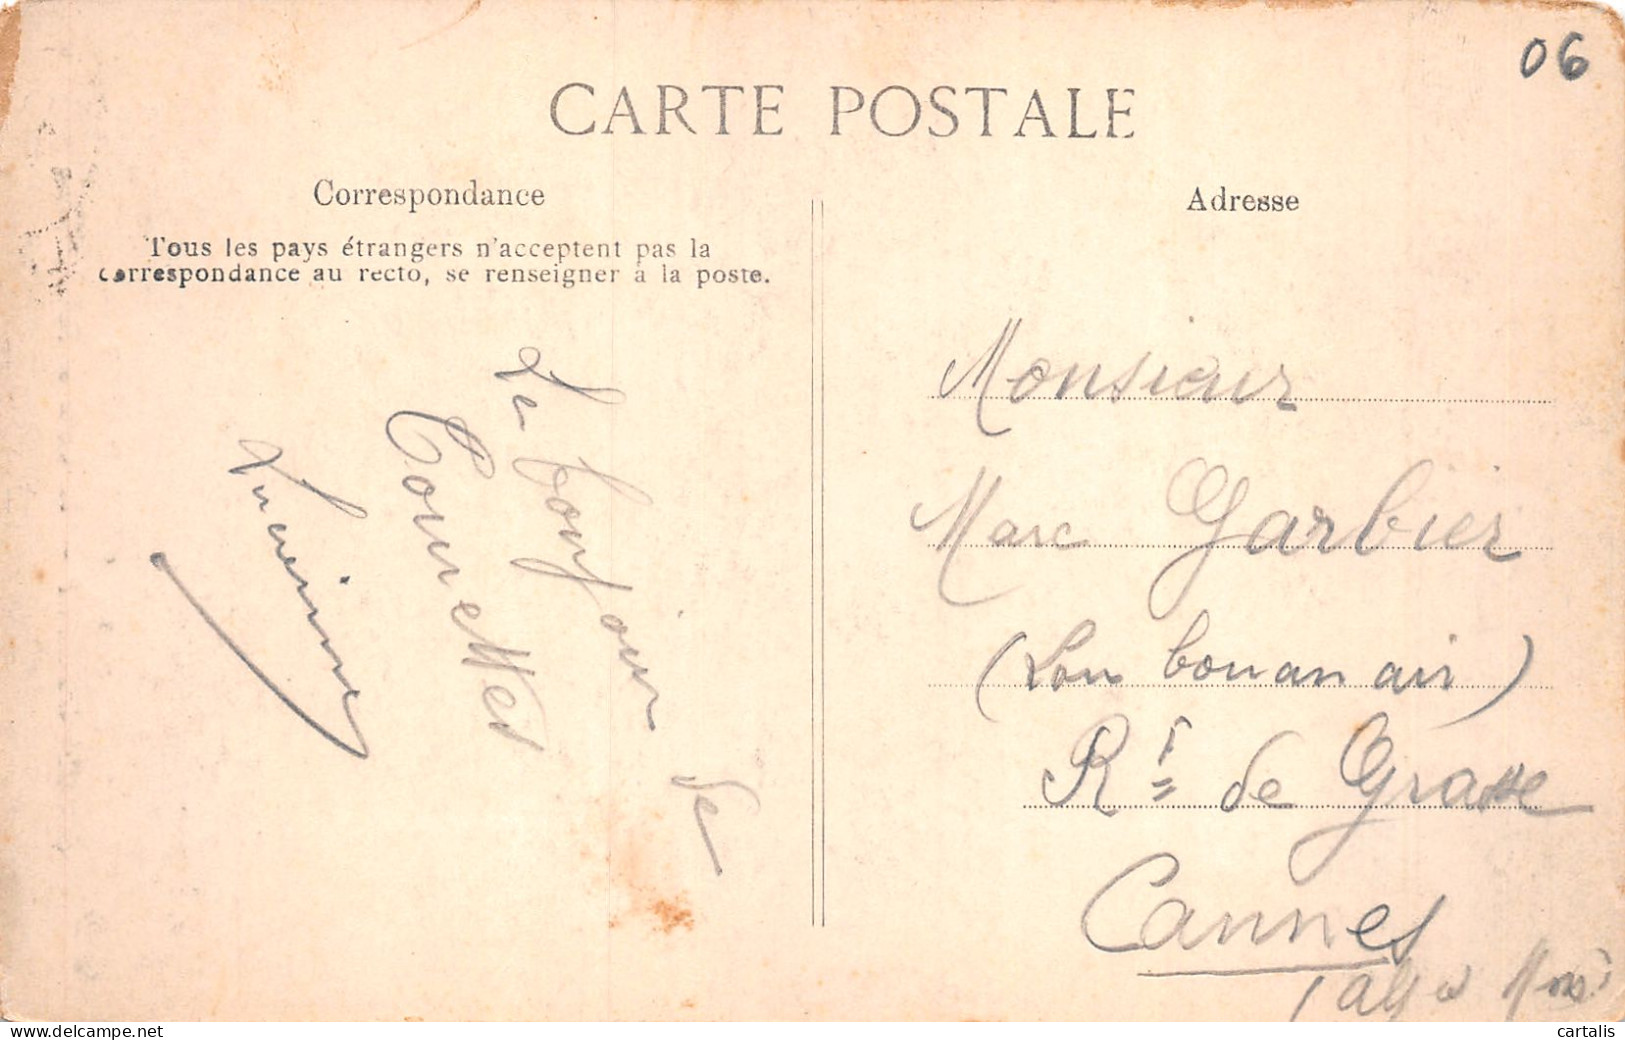 06
CARTE POSTALE
Correspondance
Tous les pays étrangers n'acceptent pas la
correspondance au recto, se renseigner à la poste.
Le bonjour de
Tourettes
Adresse
Monsieur
Marc Garbier
(Lou bouan air)
Rᵗ de Grasse
Cannes
cartalis
www.delcampe.net